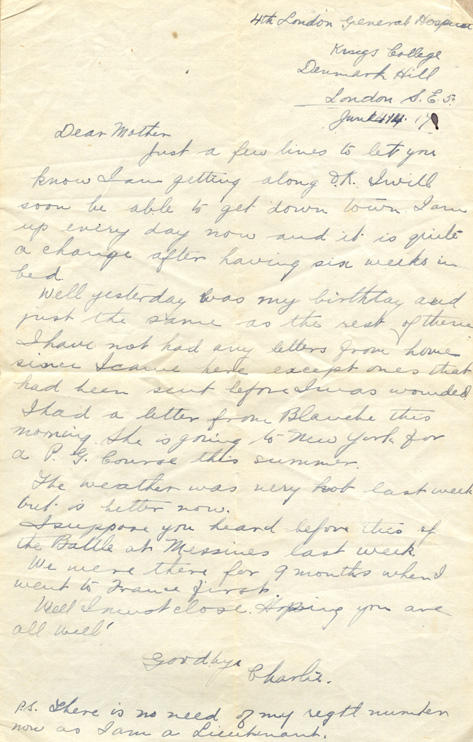 4th London General Hospital
Kings College
Denmark Hill
London S.E. 5.
June 14 17
Dear Mother
Just a few lines to let you
know I am getting along O.K. I will
soon be able to get down town I am
up every day now and it is quite
a change after having six weeks in
bed.
Well yesterday was my birthday and
just the same as the rest of them
I have not had any letters from home
since I came here except ones that
had been sent before I was wounded
I had a letter from Blanche this
morning. She is going to New York for
a P. G. Course this summer.
The weather was very hot last week
but is better now.
I suppose you heard before this of
the Battle at Messines last week
We were there for 9 months when I
went to France first.
Well I must close. Hoping you are
all well
Goodbye
Charlie.
P.S. There is no need of my regtl number
now as I am a Lieutenant.